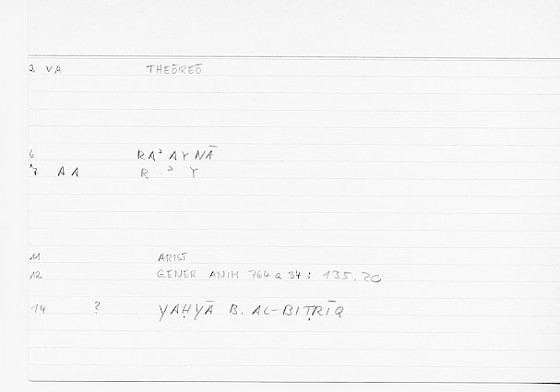 2 VA THEŌREŌ
6 RAʾAYNĀ
7 AA R ʾ Y
11 ARIST
12 GENER ANIM 764 a 34 : 135.20
14 ? YAḤYĀ B. AL-BIṬRĪQ